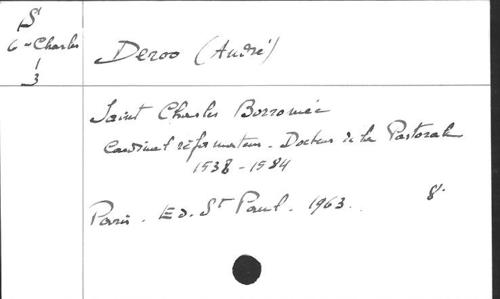 St
6 - Charles
1
3
Deroo (André)
Saint Charles Borromée
Cardinal réformateur. Docteur de la Pastorale
1538-1584
Paris. Ed. St Paul. 1963. 8°